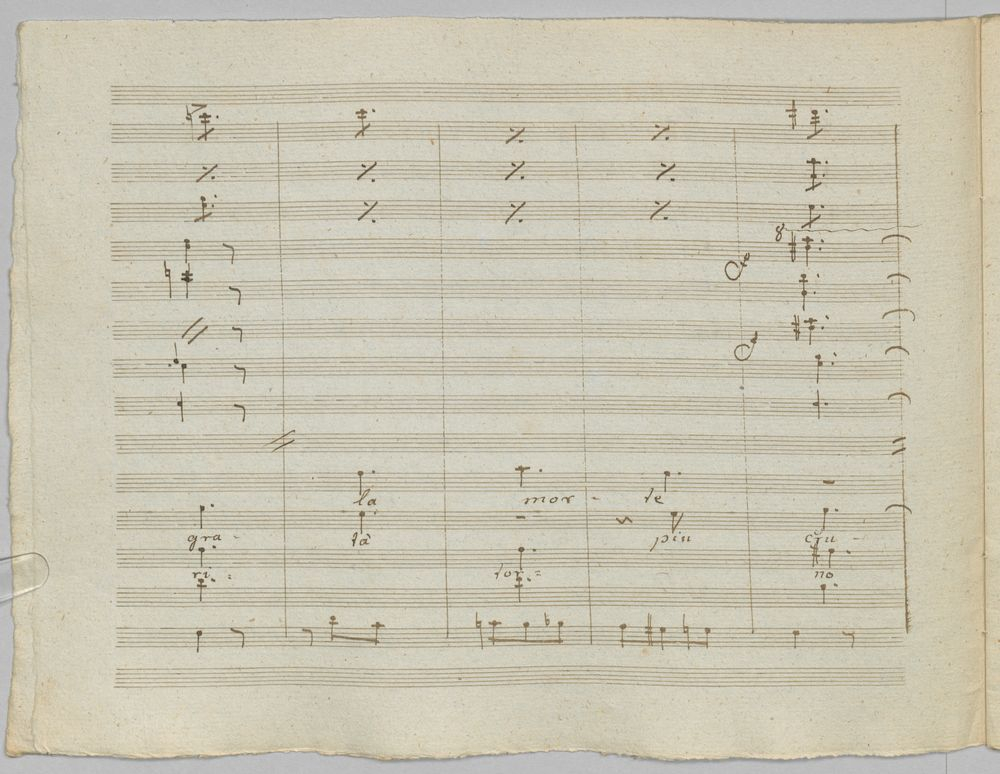 8
la mor - te
gra - tà più cru -
ri - tor = no